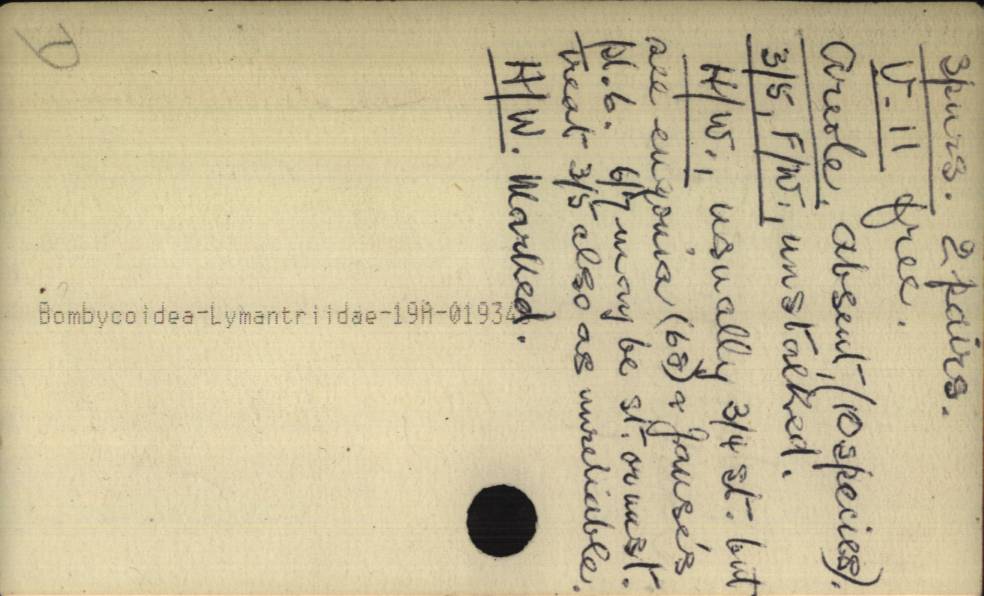 Spurs. 2 pairs.
V-11 free.
Areole, absent, (10 species).
3/5, F/W., unstalked.
H/W., usually 3/4 st. but
see eugonia (68) & Janse's
pl. 6. 6/7 may be st. or unst.
treat 3/5 also as unreliable.
H/W. Marked.
D
Bombycoidea-Lymantriidae-19A-01934